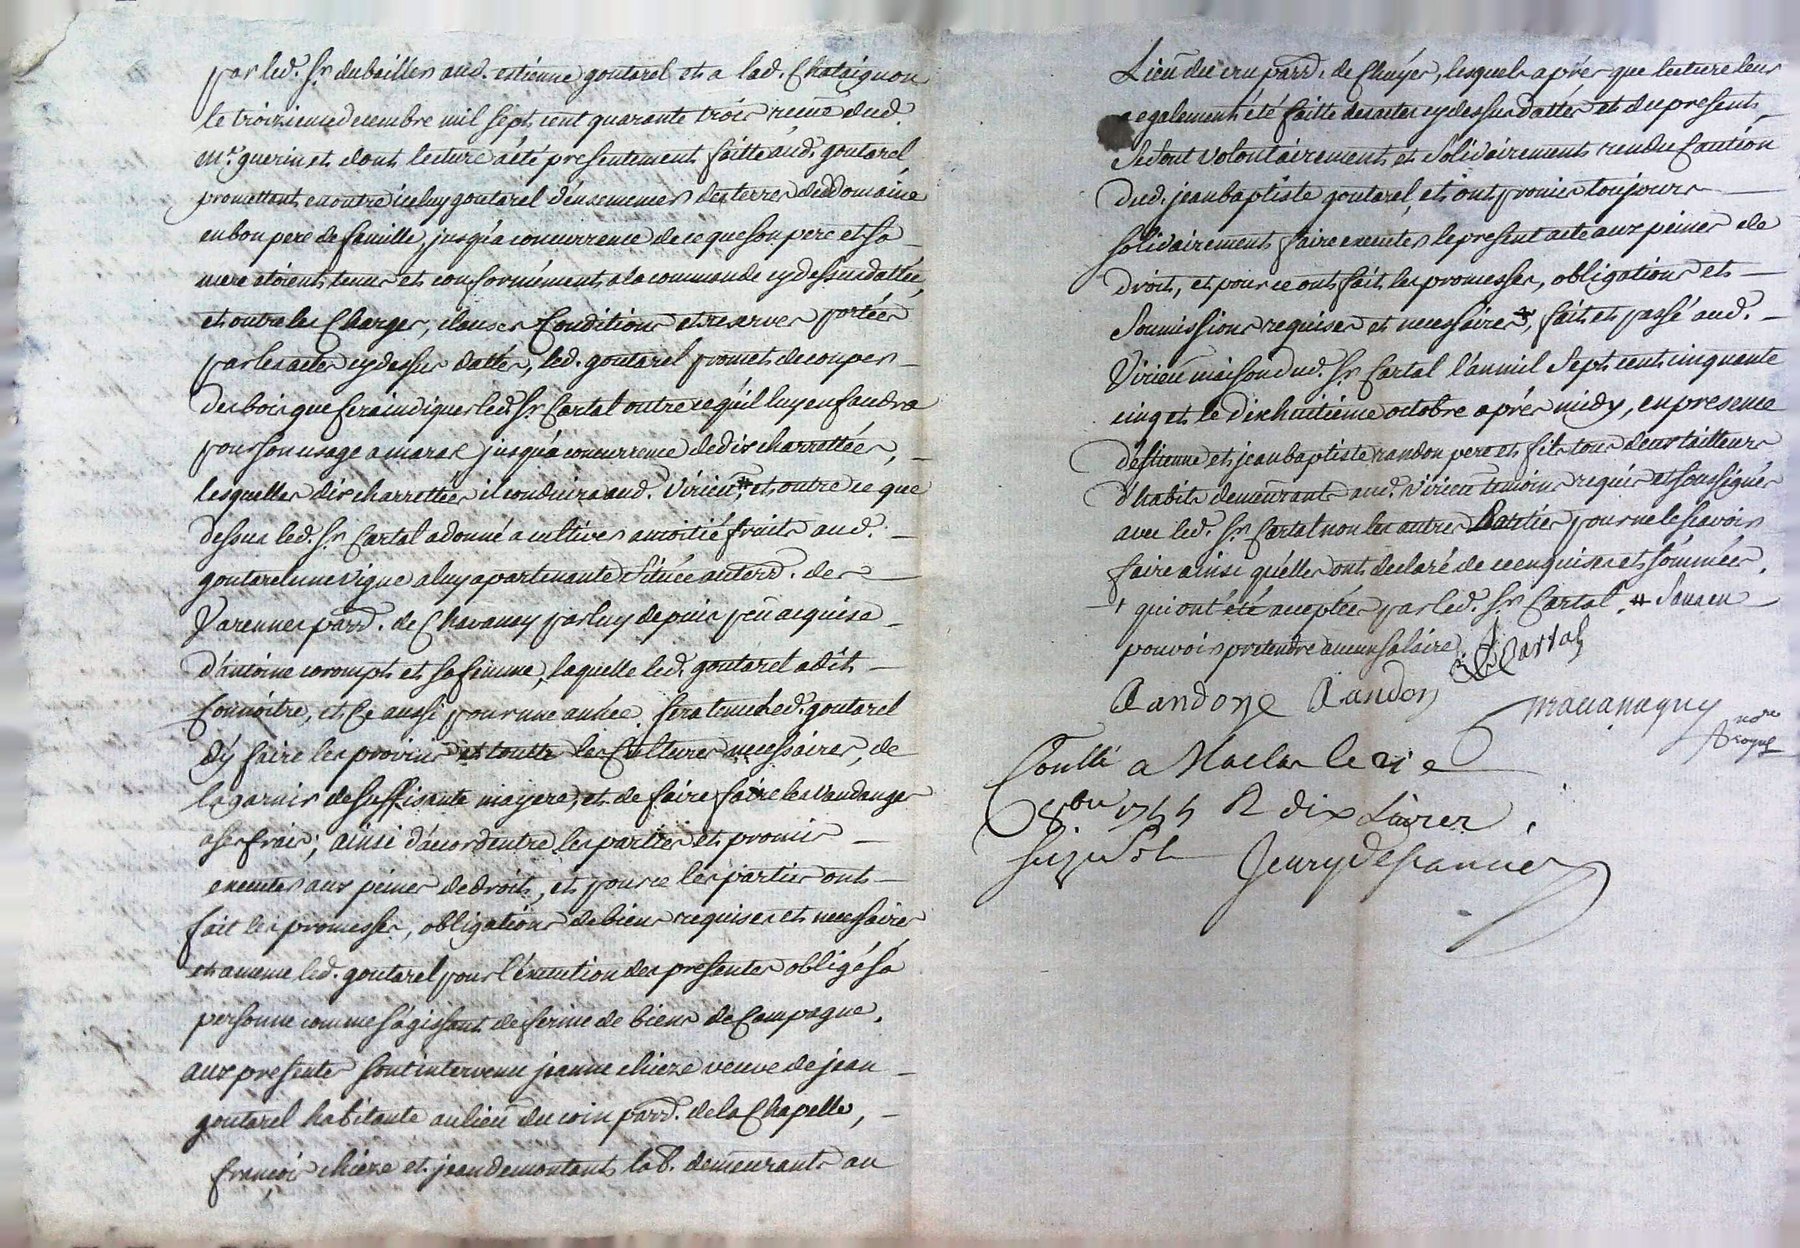 par led. Sr. dubaillier aud. estienne goutarel et a lad. Chataignon
le troizieme decembre mil sept cent quarante trois recue dud.
Mr. guerin et dont lecture a été presentement faitte aud. goutarel
promettant en outre iceluy goutarel d'ensemencer des terres dud domaine
en bon pere de famille, jusqu'a concurrence de ce que son pere et sa
mere etoient tenus et conformément a la commande cy dessus dattée,
et outre les Charges, clauses Conditions et reserves portées
par les actes cy dessus dattés, led. goutarel promet de couper
des bois que sera indiquer led. Sr. Cartal outre ce qu'il luy en faudra
pour son usage a jusqu'a concurrence de dix charrattées,
lesquelles dix charrattées il conduira aud. Virieu, # et outre ce que
dessus led. Sr. Cartal a donné a cultiver a moitié fruits aud.
goutarel une vigne a luy apartenante située au terrd. des
Varennes parr. de Chavanay par luy depuis peu acquise
d'antoine corompt et sa femme, laquelle led. goutarel a dit
Connoitre, et Ce aussi pour une année sera tenu led. goutarel
d'y faire les provins et toutte les Cultures necessaires, de
la garnir de suffisante mayere, et de faire faire les vandanges
a ses frais; ainsi d'acord entre les parties et promis
executer aux peines de droit, et pour ce les parties ont
fait les promesses, obligations de biens requises et necessaires
et a meme led. goutarel pour l'éxecution des presentes obligé sa
personne comme s'agissant de ferme de biens de Campagne.
aux presentes sont intervenu jeanne chieze veuve de jean
goutarel habitante au lieu du coin parr. de la Chapelle,
françois chieze et jean demontant lab. demeurants au
Lieu du cru parr. de Chuyer, lesquels aprés que lecture leur
a egalement été faitte des actes cy dessus dattés et du present,
se sont volontairement et solidairement rendu Caution
dud. jean baptiste goutarel, et ont promis toujours
solidairement faire executer le present acte aux peines de
droit, et pour ce ont fait les promesses, obligations et
soumissions requises et necessaires, + fait et passé aud.
Virieu maison dud. Sr. Cartal l'an mil Sept cent cinquante
cinq et le dixhuitiéme octobre aprés midy, en presence
d'estienne et jean baptiste randon pere et fils tous deux tailleurs
d'habits demeurants aud. Virieu temoins requis et soussignés
avec led. Sr. Cartal non les autres Parties pour ne le sçavoir
faire ainsi qu'elles ont declaré de ce enquises et sommées,
+ qui ont été acceptées par led. Sr. Cartal. # Sans en
pouvoir pretendre aucun salaire. Cartal
Randon Randon
nore
royal
Conllé a Maclas le
8bre 1755 R dix Livres